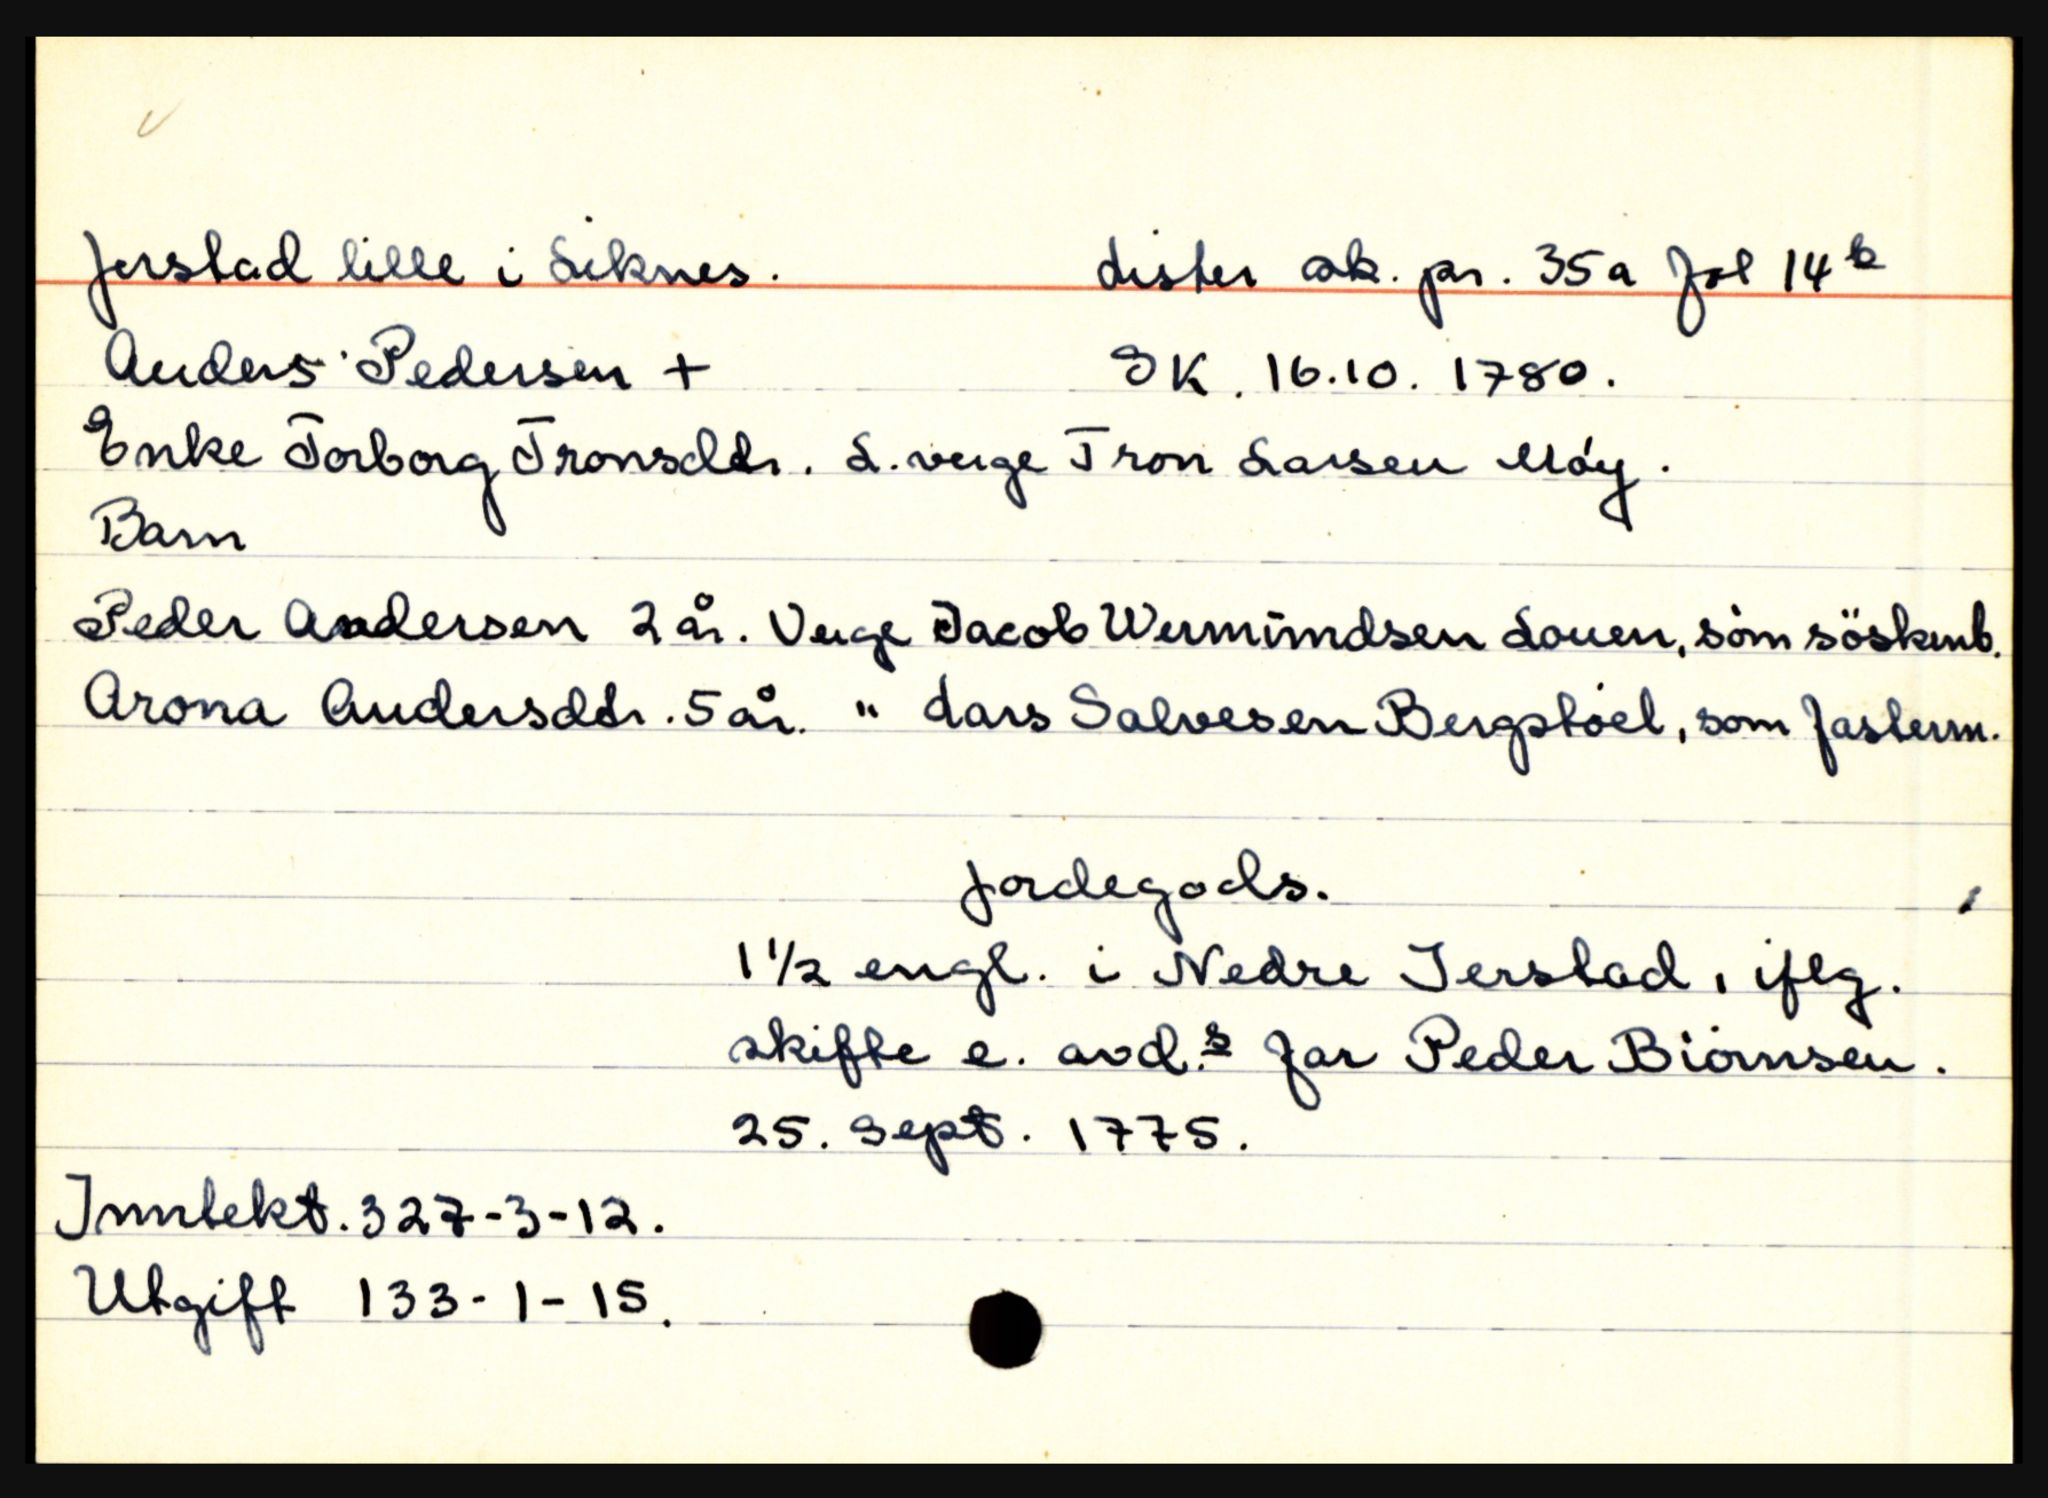 Jerstad lille i Liknes. Lister sk. pr. 35a fol 14b
Anders Pedersen + SK. 16.10. 1780.
Enke Torborg Tronsdtr. L. verge Tron Larsen Møy.
Barn
Peder Andersen 2 år. Verge Jacob Wermundsen Louen, som söskenb.
Arona Andersdtr. 5 år. " Lars Salvesen Bergstøel, som fasterm.
Jordegods.
1 1/2 engl. i Nedre Jerstad, iflg.
skifte e. avd.s far Peder Biørnsen.
25. Sept. 1775.
Inntekt. 327-3-12.
Utgift 133-1-15.